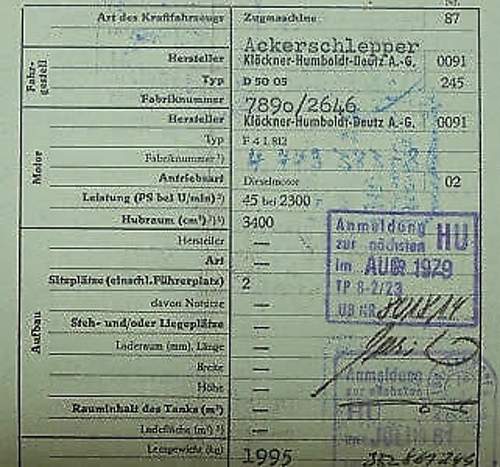 Nr.
Art des Kraftfahrzeugs Zugmaschine 87
Ackerschlepper
Fahr-
gestell
Hersteller Klöckner-Humboldt-Deutz A.-G. 0091
Typ D 50 05 245
Fabriknummer 789o/2646
Motor
Hersteller Klöckner-Humboldt-Deutz A.-G. 0091
Typ F 4 L 812
Fabriknummer
Antriebsart Dieselmotor 02
Leistung (PS bei U/min) 45 bei 2300
Hubraum (cm³) 3400
Aufbau
Hersteller —
Art —
Sitzplätze (einschl. Führerplatz) 2
davon Notsitze —
Steh- und/oder Liegeplätze —
Laderaum (mm), Länge —
Breite —
Höhe —
Rauminhalt des Tanks (m³) —
Ladefläche (m²) —
Leergewicht (kg) 1995
Anmeldung
zur nächsten HU
im AUG 1979
TP 8-2/23
ÜB NR.
Anmeldung
zur nächsten
HU